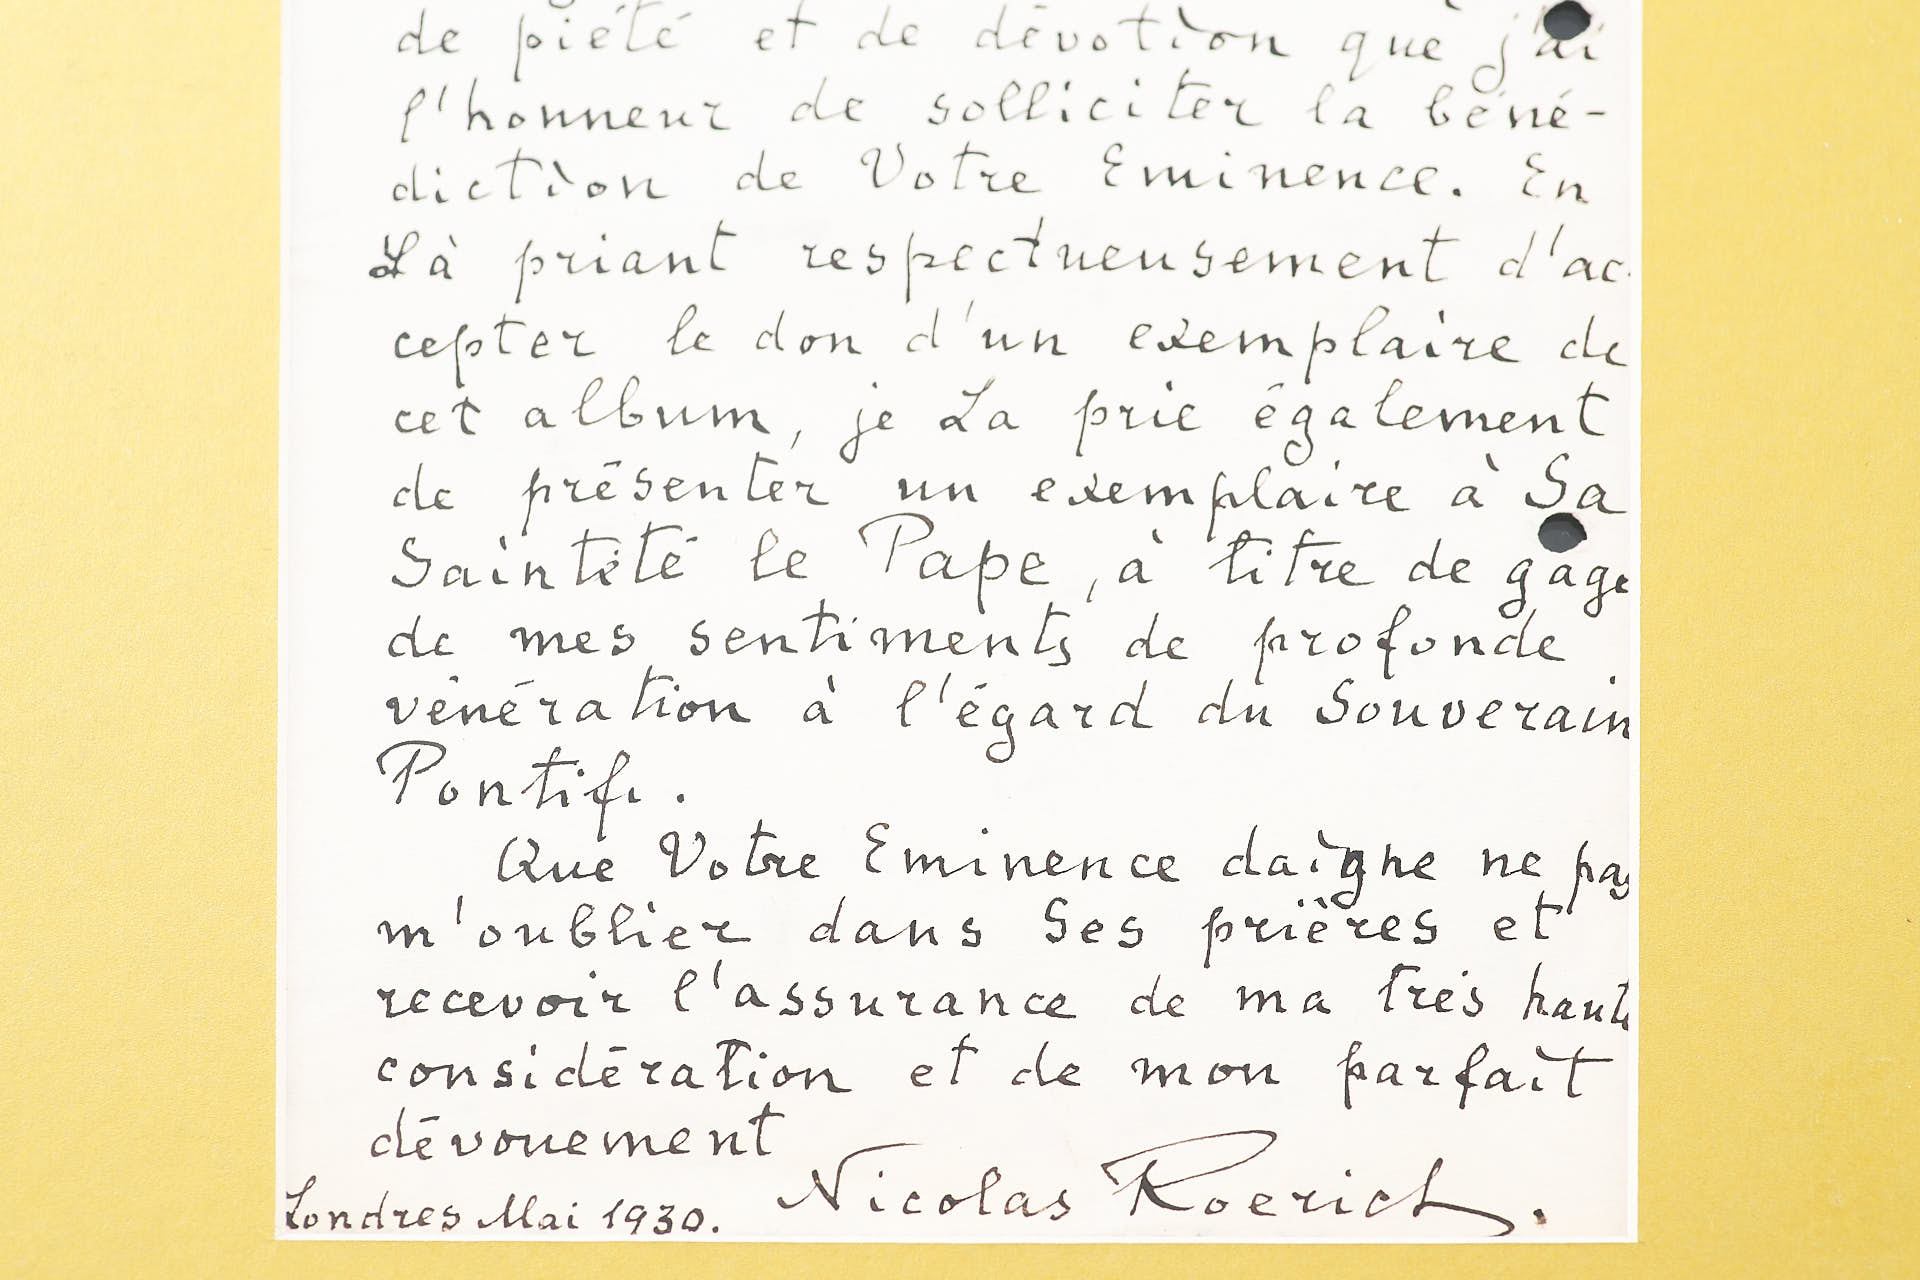 de piété et de dévotion que j'ai
l'honneur de solliciter la béné-
diction de Votre Eminence. En
Là priant respectueusement d'ac-
cepter le don d'un exemplaire de
cet album, je La prie également
de présenter un exemplaire à Sa
Sainteté le Pape, à titre de gage
de mes sentiments de profonde
vénération à l'égard du Souverain
Pontife.
Que Votre Eminence daigne ne pas
m'oublier dans Ses prières et
recevoir l'assurance de ma très haute
considération et de mon parfait
dévouement
Londres Mai 1930. Nicolas Roerich.